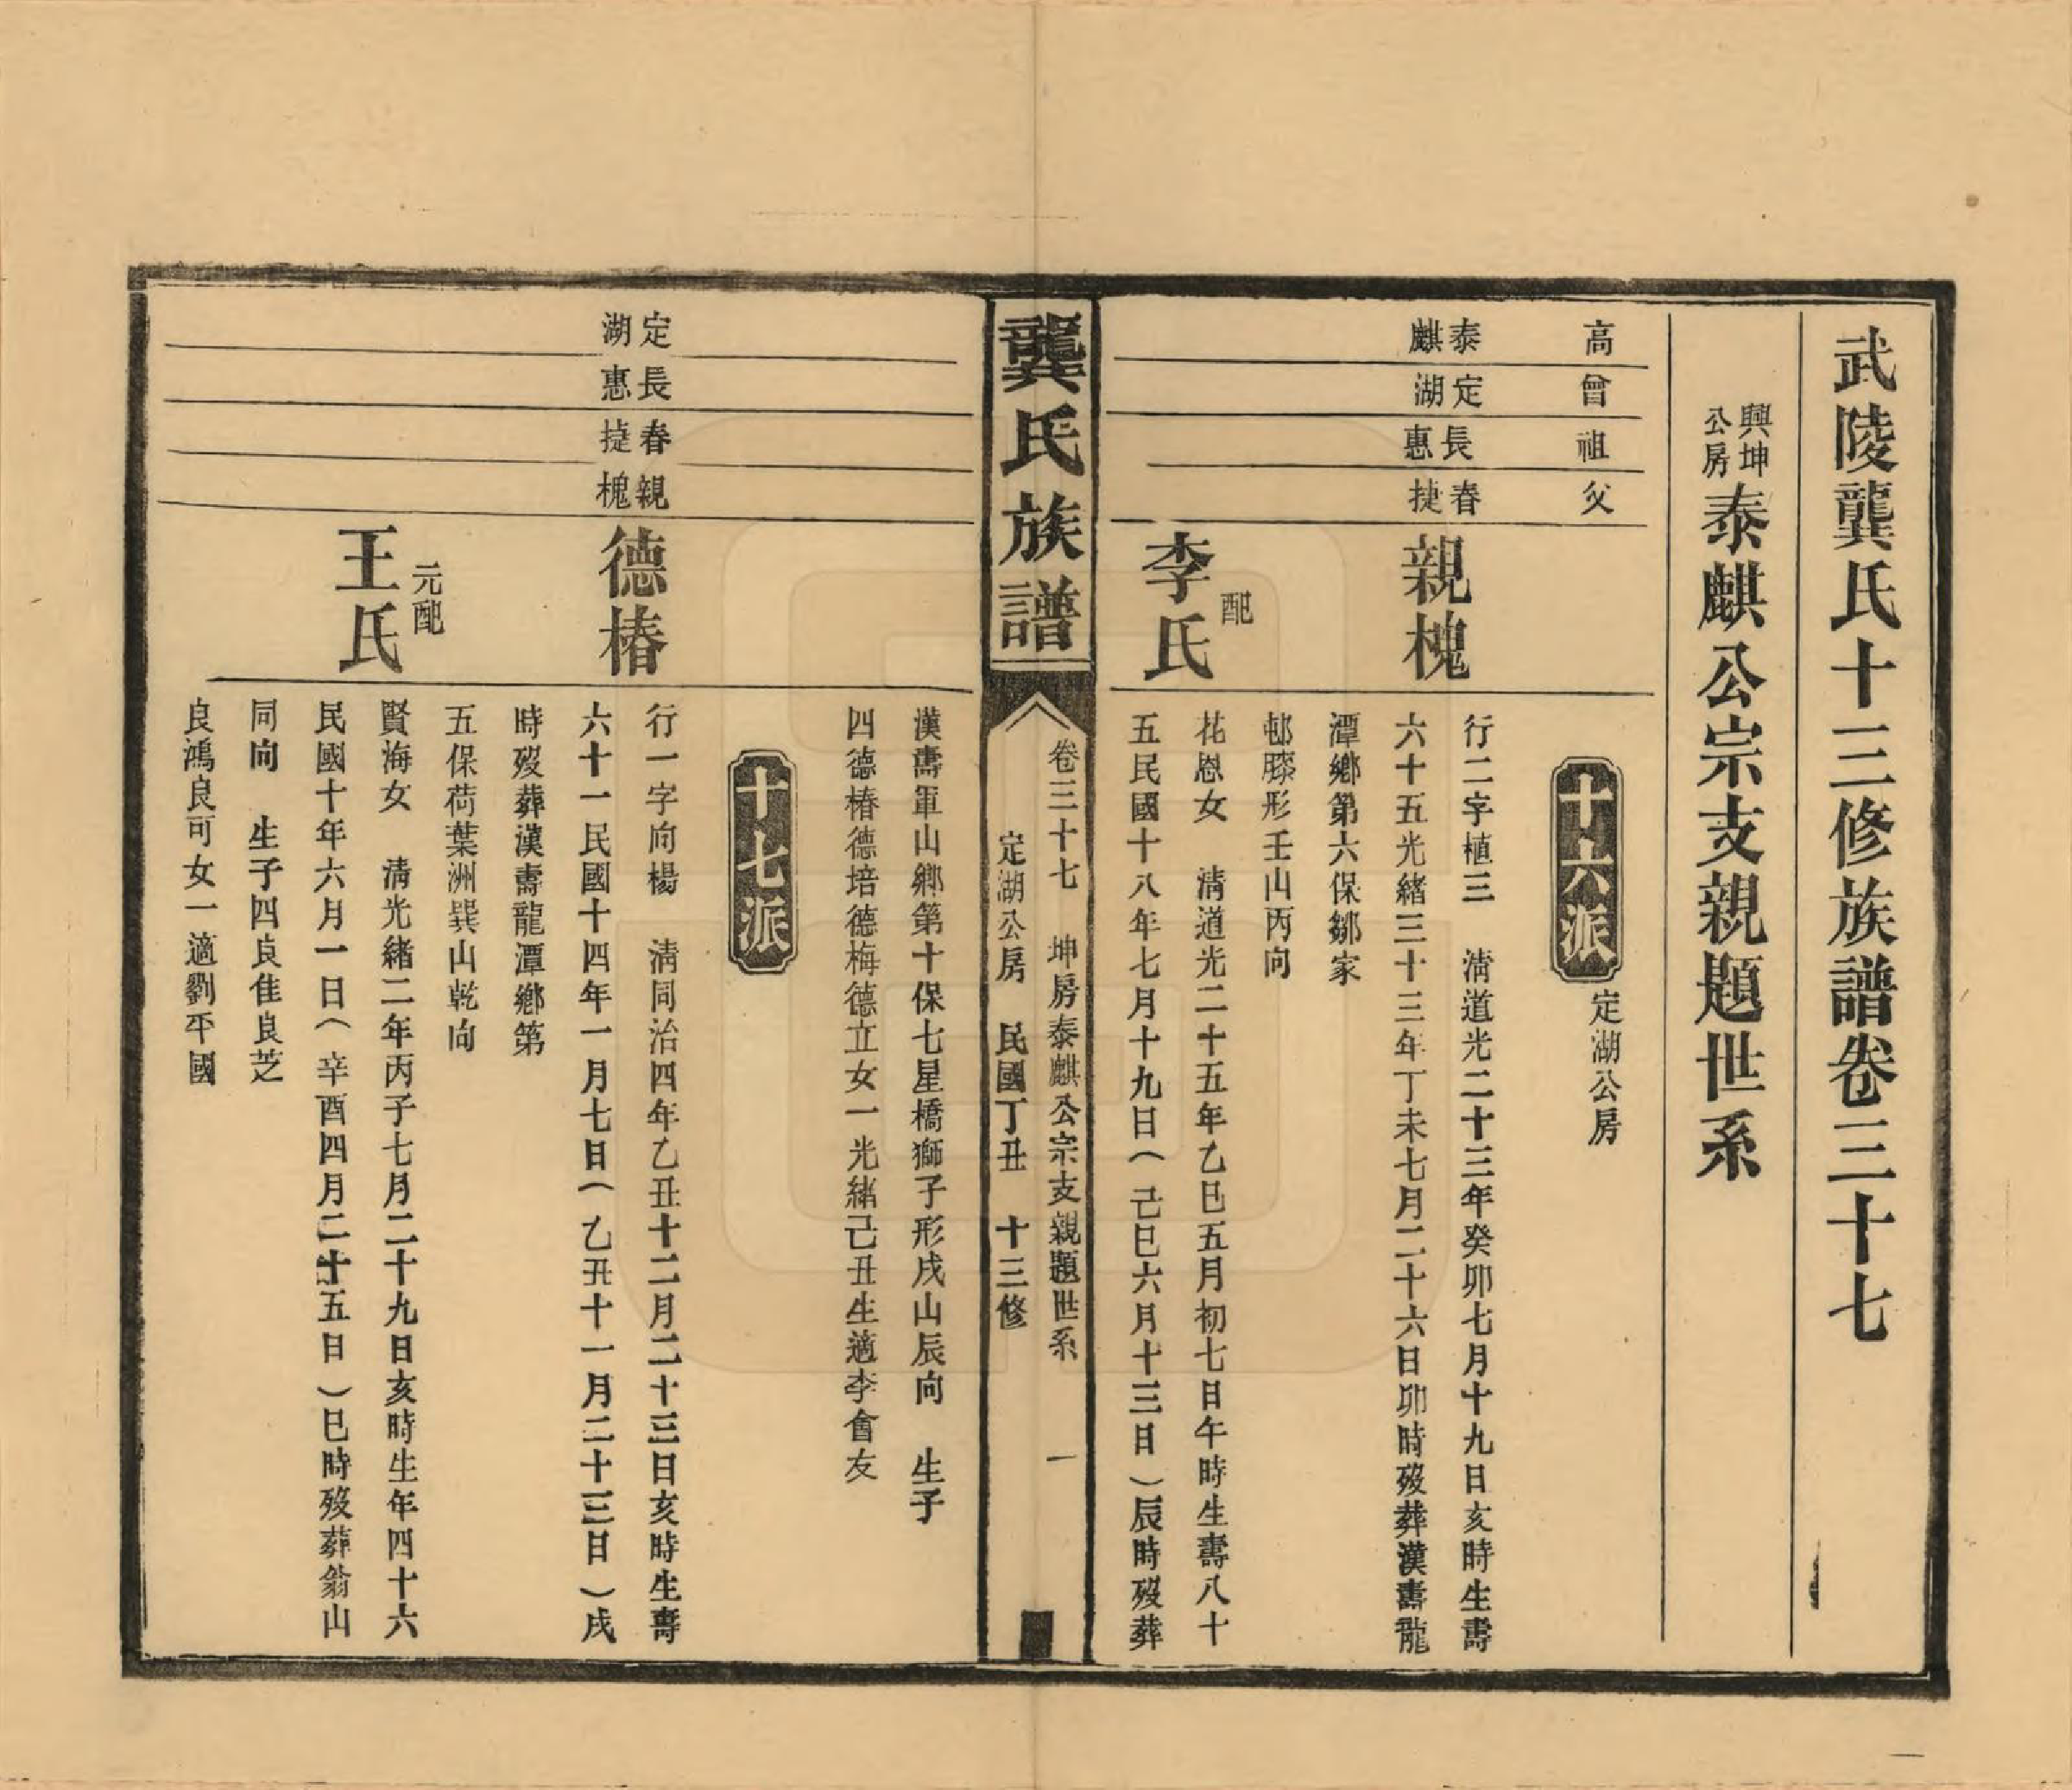 武陵龔氏十三修族譜卷三十七
興坤公房泰麒公宗支親題世系
高
曾
祖
父
十六派
定湖公房
泰麒
定湖
長惠
春捷
親槐
行二字植三 清道光二十三年癸卯七月十九日亥時生壽
六十五光緒三十三年丁未七月二十六日卯時歿葬漢壽龍
潭鄉第六保鄒家
邨膝形壬山丙向
配
李氏
花恩女 清道光二十五年乙巳五月初七日午時生壽八十
五民國十八年七月十九日(己巳六月十三日)辰時歿葬
龔氏族譜
卷三十七 坤房泰麒公宗支親題世系 一
定湖公房 民國丁丑 十三修
漢壽軍山鄉第十保七星橋獅子形戌山辰向 生子
四德椿德培德梅德立女一光緒己丑生適李會友
十七派
定湖
長惠
春捷
親槐
德椿
行一字向楊 清同治四年乙丑十二月二十三日亥時生壽
六十一民國十四年一月七日(乙丑十一月二十三日)戌
時歿葬漢壽龍潭鄉第
五保荷葉洲巽山乾向
元配
王氏
賢海女 清光緒二年丙子七月二十九日亥時生年四十六
民國十年六月一日(辛酉四月二十五日)巳時歿葬翁山
同向 生子四良佳良芝
良鴻良可女一適劉平國